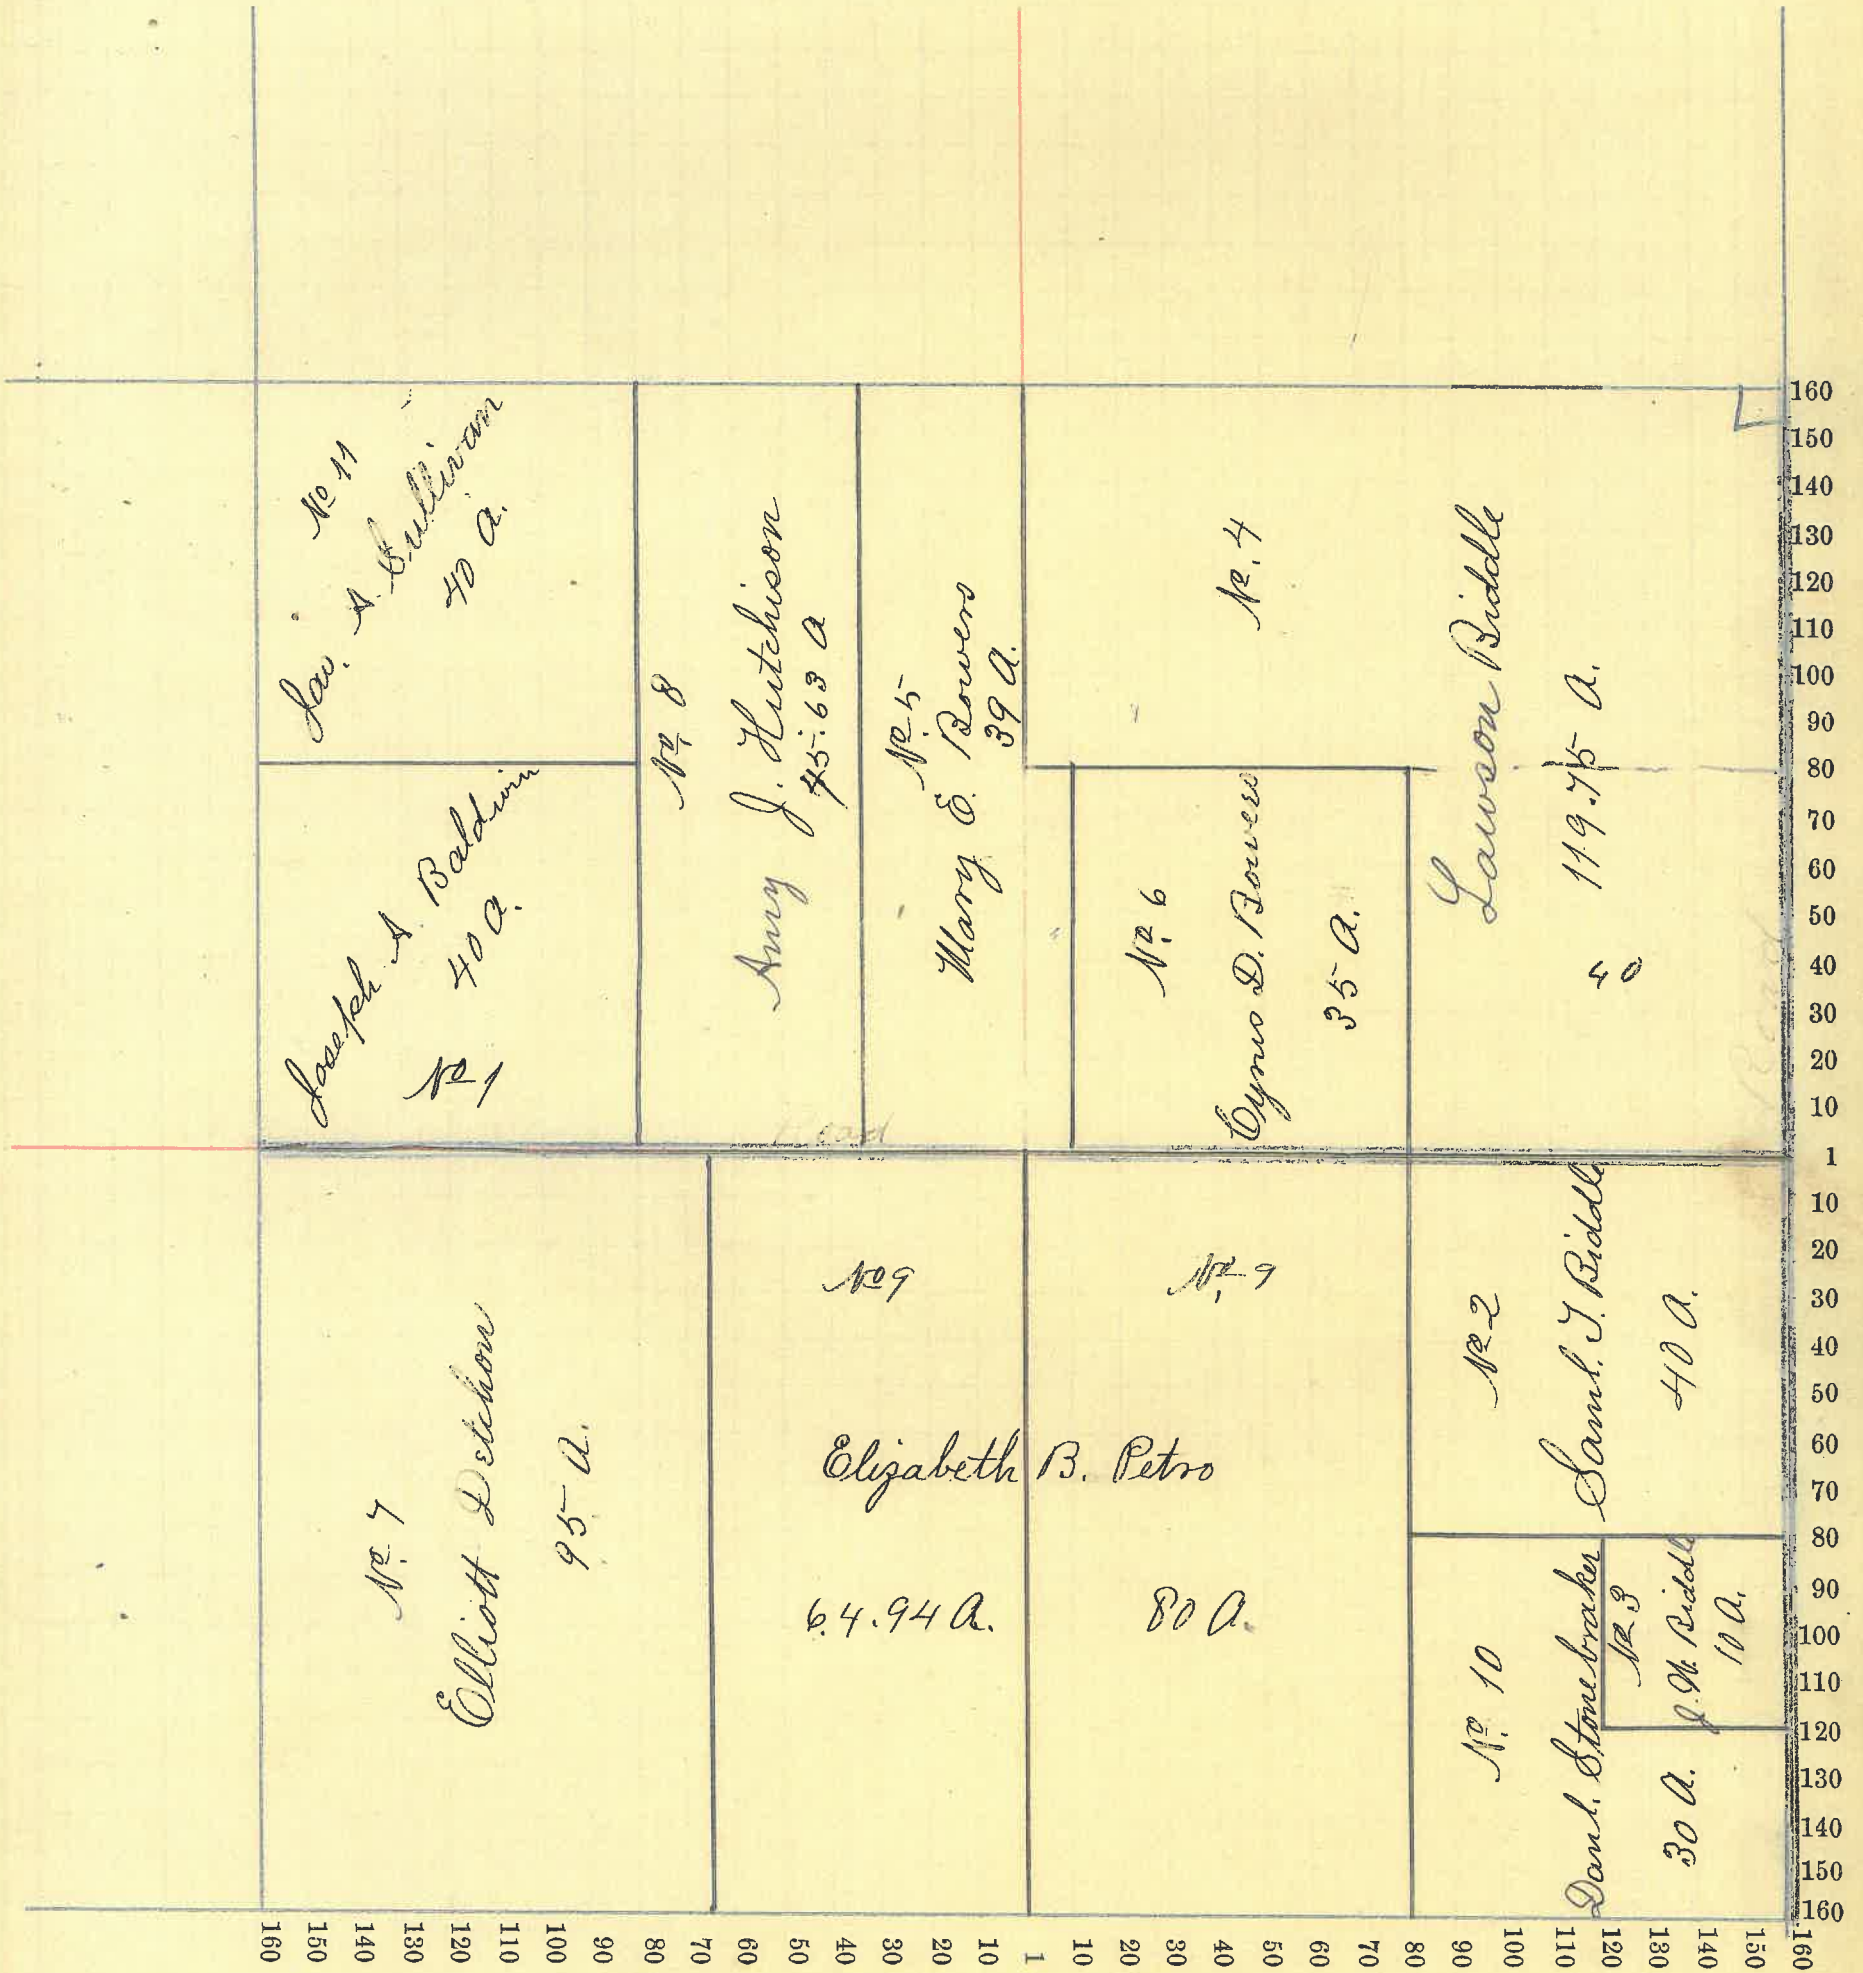 No 11
Jas. A. Sullivan
40 A.
Joseph A. Baldwin
40 A.
No 1
No. 8
Amy J. Hutchison
45.63 A
No. 5
Mary E. Bowers
39 A.
No. 4
Lawson Biddle
119.75 A.
40
No. 6
Cyrus D. Bowers
35 A.
Road
No. 7
Elliott Detchon
95 A.
No 9
No. 9
Elizabeth B. Petro
64.94 A.
80 A.
No 2
Saml. T. Biddle
40 A.
No. 10
Danl. Stonebraker
30 A.
No 3
J. W. Biddle
10 A.
160
150
140
130
120
110
100
90
80
70
60
50
40
30
20
10
1
10
20
30
40
50
60
70
80
90
100
110
120
130
140
150
160
160
150
140
130
120
110
100
90
80
70
60
50
40
30
20
10
1
10
20
30
40
50
60
70
80
90
100
110
120
130
140
150
160